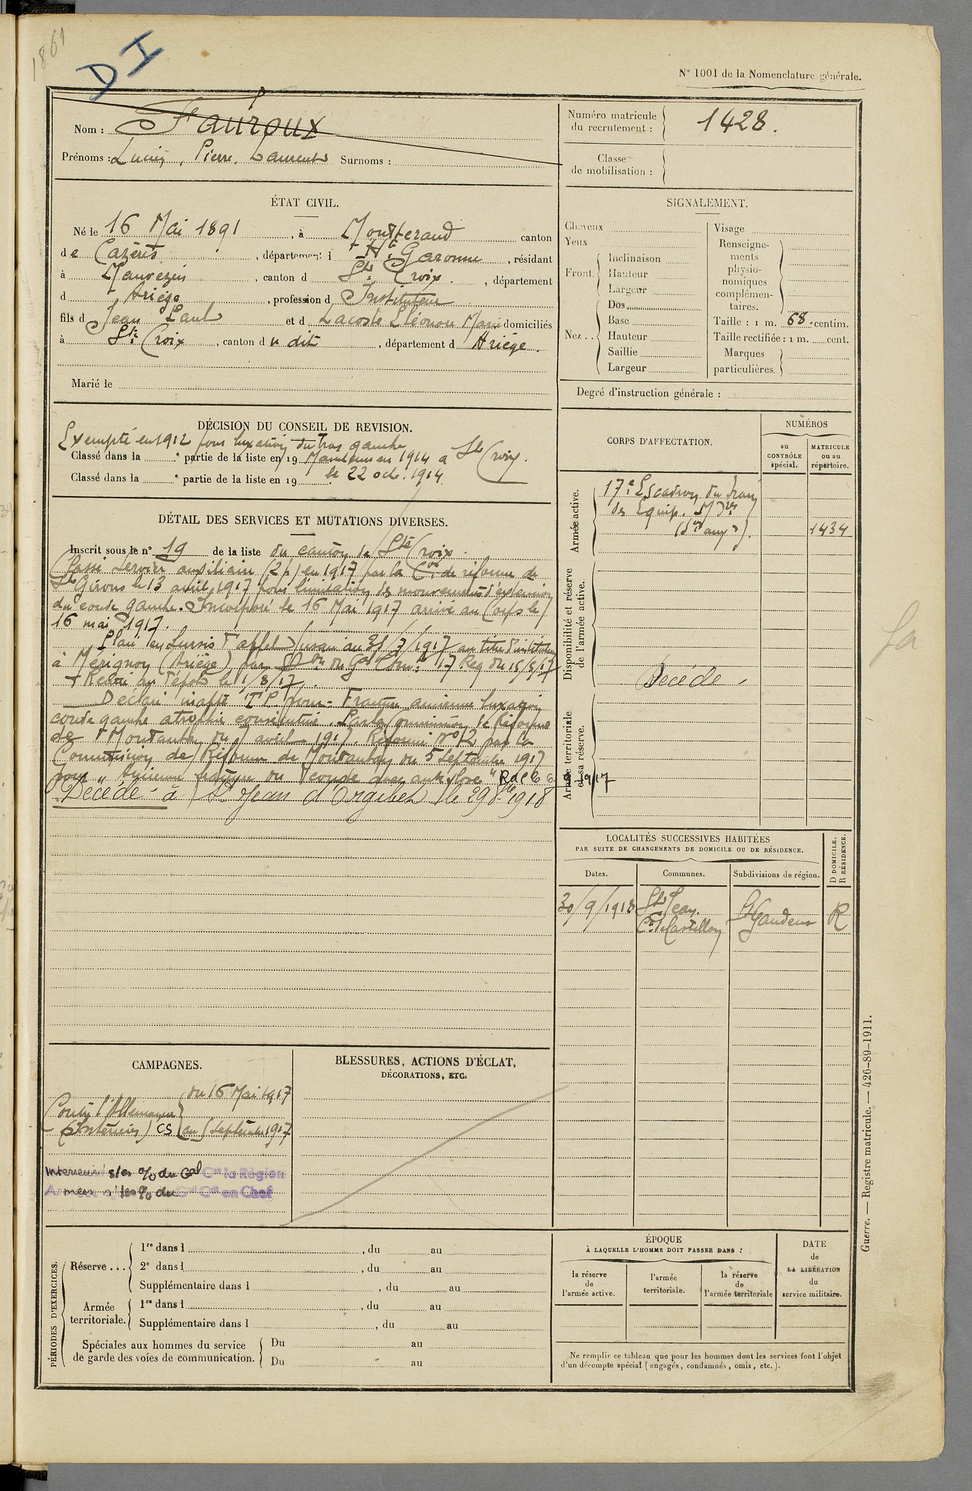 1861
DI
N° 1001 de la Nomenclature générale.
Nom : Fauroux
Prénoms : Lucien, Pierre, Laurent Surnoms :
Numéro matricule du recrutement : 1428.
Classe de mobilisation :
ÉTAT CIVIL.
Né le 16 Mai 1891, à Montberaud canton
de Cazères, département d Hte Garonne, résidant
à Mauvezin, canton d Ste Croix, département
d Ariège, profession d Instituteur
fils d Jean Paul et d Lacoste Eléonore Marie domiciliés
à Ste Croix, canton d u dit, département d Ariège.
Marié le
SIGNALEMENT.
Cheveux
Yeux
Front
Inclinaison
Hauteur
Largeur
Nez
Dos
Base
Hauteur
Saillie
Largeur
Visage
Renseigne-
ments
physio-
nomiques
complémen-
taires.
Taille : 1 m. 68 centim.
Taille rectifiée : 1 m. cent.
Marques
particulières
Degré d'instruction générale :
DÉCISION DU CONSEIL DE REVISION.
Exempté en 1912 pour luxation du bras gauche
Classé dans la ° partie de la liste en 19 Maintenu en 1914 a Ste Croix.
Classé dans la ° partie de la liste en 19 le 22 oct. 1914
DÉTAIL DES SERVICES ET MUTATIONS DIVERSES.
Inscrit sous le n° 19 de la liste du canton de Ste Croix.
Classé service auxiliaire (2 p) en 1917 par la Con de réforme de
St Girons le 13 avril 1917 pour limitation des mouvements d'extension
du coude gauche. Incorporé le 16 Mai 1917 arrivé au Corps le
16 mai 1917.
Placé en sursis d'appel jusqu'au 31/7/1917 au titre d'instituteur
à (Ariège) par du Gal Comt 17 Reg du 15/5/17
Relevé au dépôt le 1/8/17.
Déclaré inapte pour Fracture ancienne luxation
coude gauche atrophie consécutive. Par la commission de Réforme
de Montauban du avril 1917. Réformé N° 2 par la
Commission de Réforme de Montauban du 5 Septembre 1917
pour "Ancienne fracture du coude avec ankylose" R. d. C. le 6.9.1917
Décédé à St Jean d'Orgibet le 29 8bre 1918
CORPS D'AFFECTATION.
NUMÉROS
au CONTRÔLE spécial.
MATRICULE ou au répertoire.
Armée active.
17e Escadron du Train
des Equip. Mres
(Son aux re).
1434
Disponibilité et réserve de l'armée active.
Décédé
Armée territoriale et sa réserve.
LOCALITÉS SUCCESSIVES HABITÉES
PAR SUITE DE CHANGEMENTS DE DOMICILE OU DE RÉSIDENCE.
Dates.
Communes.
Subdivisions de région.
D DOMICILE.
R RÉSIDENCE.
30/9/1918 St Jean
Con de Castillon
St Gaudens R
CAMPAGNES.
Contre l'Allemagne
(Intérieur) CS
du 16 Mai 1917
au 5 Septembre 1917
Intérieur s/les % du Gal Ct la Région
Armées s/les % du Gal Ct en Chef
BLESSURES, ACTIONS D'ÉCLAT,
DÉCORATIONS, ETC.
PÉRIODES D'EXERCICES.
Réserve ...
1re dans l , du au
2e dans l , du au
Supplémentaire dans l , du au
Armée territoriale.
1re dans l , du au
Supplémentaire dans l , du au
Spéciales aux hommes du service
de garde des voies de communication.
Du au
Du au
ÉPOQUE
À LAQUELLE L'HOMME DOIT PASSER DANS :
la réserve de l'armée active.
l'armée territoriale.
la réserve de l'armée territoriale
DATE de LA LIBÉRATION du service militaire.
Ne remplir ce tableau que pour les hommes dont les services font l'objet
d'un décompte spécial (engagés, condamnés, omis, etc.).
Guerre. — Registre matricule. — 426-89-1911.